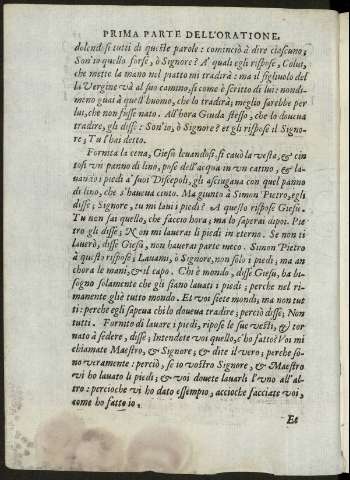 PRIMA PARTE DELL'ORATIONE.
dolendosi tutti di queste parole: cominciò à dire ciascuno;
Son'io quello forse, ò Signore? A' quali egli rispose, Colui,
che mette la mano nel piatto mi tradirà: ma il figliuolo del
la Vergine và al suo camino, si come è scritto di lui: nondi-
meno guai à quell'huomo, che lo tradirà; meglio sarebbe per
lui, che non fusse nato. All'hora Giuda stesso, che lo doueua
tradire, gli disse: Son'io, ò Signore? et gli rispose il Signo-
re; Tu l'hai detto.
Fornita la cena, Giesù leuandosi, si cauò la vesta, & cin
tosi vn panno di lino, pose dell'acqua in vn catino, & la-
uando i piedi a' suoi Discepoli, gli asciugaua con quel panno
di lino, che s'haueua cinto. Ma giunto à Simon Pietro, egli
disse; Signore, tu mi laui i piedi? A questo rispose Giesù.
Tu non sai quello, che faccio hora; ma lo saperai dipoi. Pie
tro gli disse; Non mi lauerai li piedi in eterno. Se non ti
lauerò, disse Giesù, non hauerai parte meco. Simon Pietro
à questo rispose; Lauami, ò Signore, non solo i piedi; ma an
chora le mani, & il capo. Chi è mondo, disse Giesù, ha bi-
sogno solamente che gli siano lauati i piedi; perche nel ri-
manente gliè tutto mondo. Et voi siete mondi; ma non tut
ti: perche egli sapeua chi lo doueua tradire; perciò disse; Non
tutti. Fornito di lauare i piedi, ripose le sue vesti, & tor
nato à sedere, disse; Intendete voi quello, c'ho fatto? Voi mi
chiamate Maestro, & Signore; & dite il vero; perche so-
no veramente: perciò, se io vostro Signore, & Maestro
vi ho lauato li piedi; & voi douete lauarli l'vno all'al-
tro: percioche vi ho dato essempio, accioche facciate voi,
come ho fatto io.
Et